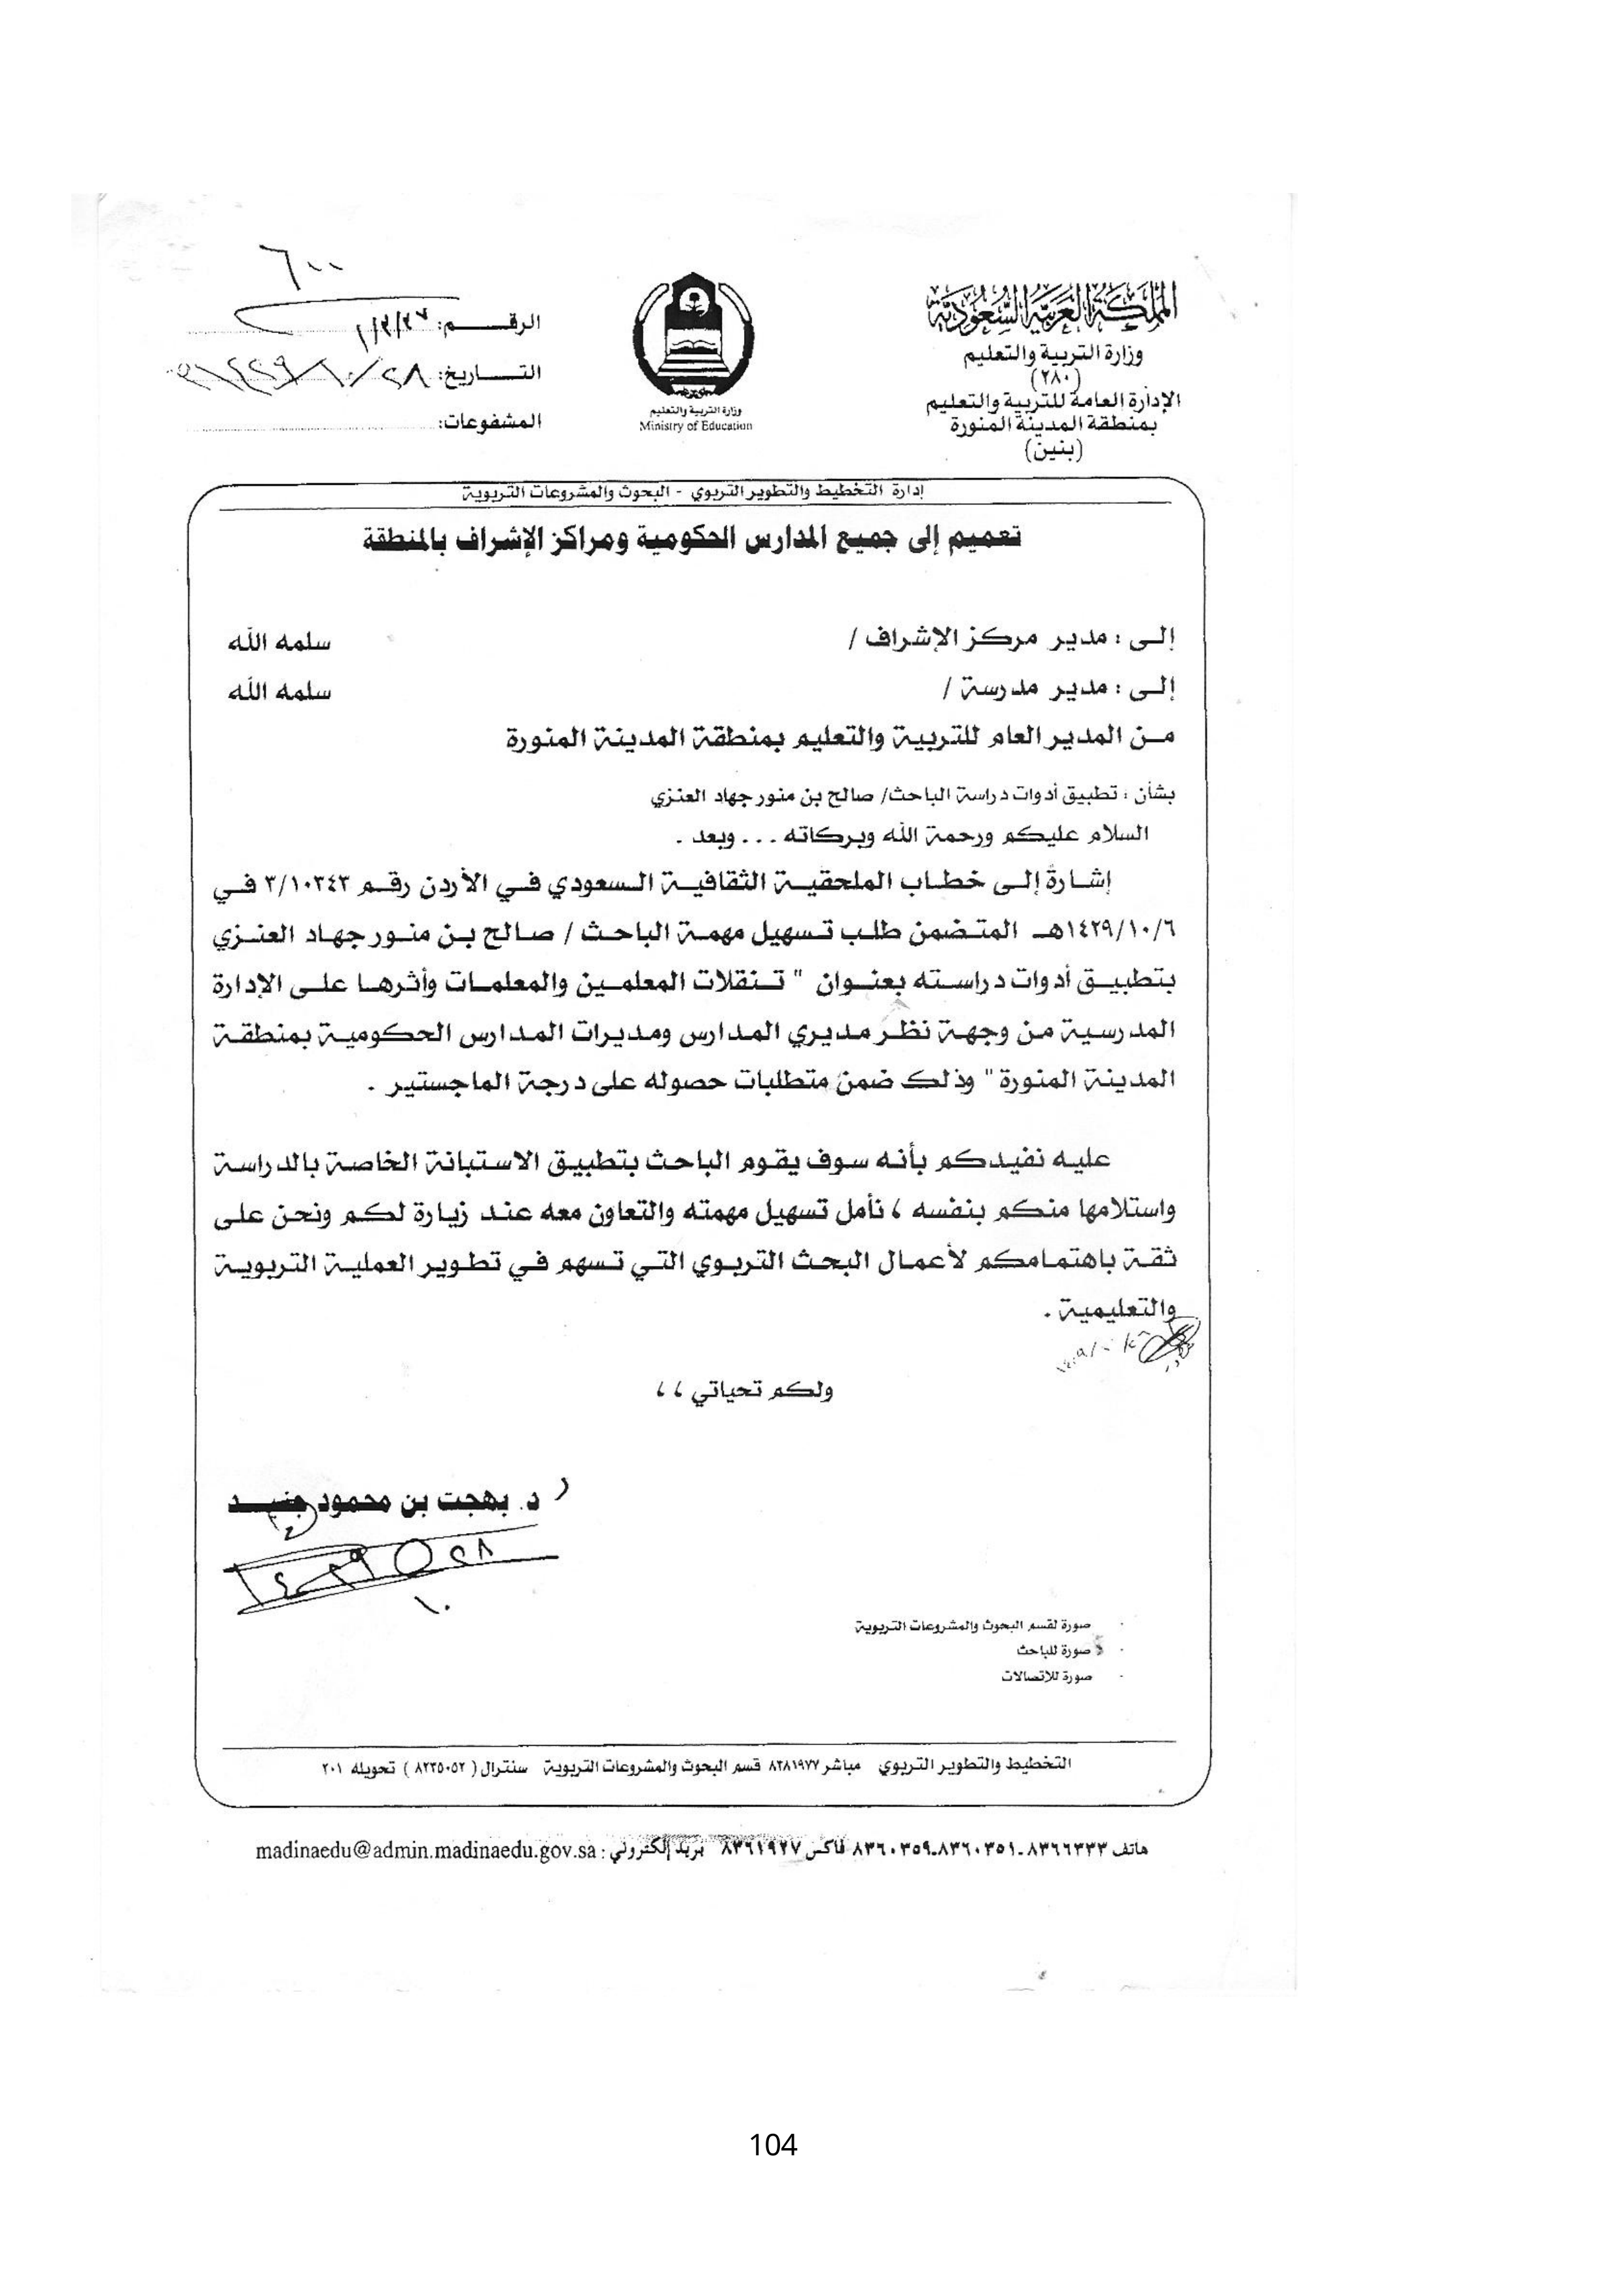 المملكة العربية السعودية
وزارة التربية والتعليم
(٢٨٠)
الإدارة العامة للتربية والتعليم
بمنطقة المدينة المنورة
(بنين)
وزارة التربية والتعليم
Ministry of Education
٦٠٠
الرقــــم:
التــــاريخ: ٢٨/١٠/١٤٢٩هـ
المشفوعات:
إدارة التخطيط والتطوير التربوي - البحوث والمشروعات التربوية
تعميم إلى جميع المدارس الحكومية ومراكز الإشراف بالمنطقة
إلى : مدير مركز الإشراف / سلمه الله
إلى : مدير مدرسة / سلمه الله
من المدير العام للتربية والتعليم بمنطقة المدينة المنورة
بشأن : تطبيق أدوات دراسة الباحث/ صالح بن منور جهاد العنزي
السلام عليكم ورحمة الله وبركاته ... وبعد .
إشارة إلى خطاب الملحقية الثقافية السعودي في الأردن رقم ٣/١٠٣٤٣ في
١٤٢٩/١٠/٦هـ المتضمن طلب تسهيل مهمة الباحث / صالح بن منور جهاد العنزي
بتطبيق أدوات دراسته بعنوان " تنقلات المعلمين والمعلمات وأثرها على الإدارة
المدرسية من وجهة نظر مديري المدارس ومديرات المدارس الحكومية بمنطقة
المدينة المنورة" وذلك ضمن متطلبات حصوله على درجة الماجستير .
عليه نفيدكم بأنه سوف يقوم الباحث بتطبيق الاستبانة الخاصة بالدراسة
واستلامها منكم بنفسه ، نأمل تسهيل مهمته والتعاون معه عند زيارة لكم ونحن على
ثقة باهتمامكم لأعمال البحث التربوي التي تسهم في تطوير العملية التربوية
والتعليمية .
ولكم تحياتي ،،
د. بهجت بن محمود جنيد
صورة لقسم البحوث والمشروعات التربوية
صورة للباحث
صورة للاتصالات
التخطيط والتطوير التربوي مباشر ٨٢٨١٩٧٧ قسم البحوث والمشروعات التربوية سنترال ( ٨٢٢٥٠٥٢ ) تحويله ٢٠١
هاتف ٨٣٦٦٣٣٣-٨٣٦٠٣٥١-٨٣٦٠٣٥٩ فاكس ٨٣٦١٩٢٧ بريد إلكتروني : madinaedu@admin.madinaedu.gov.sa
104